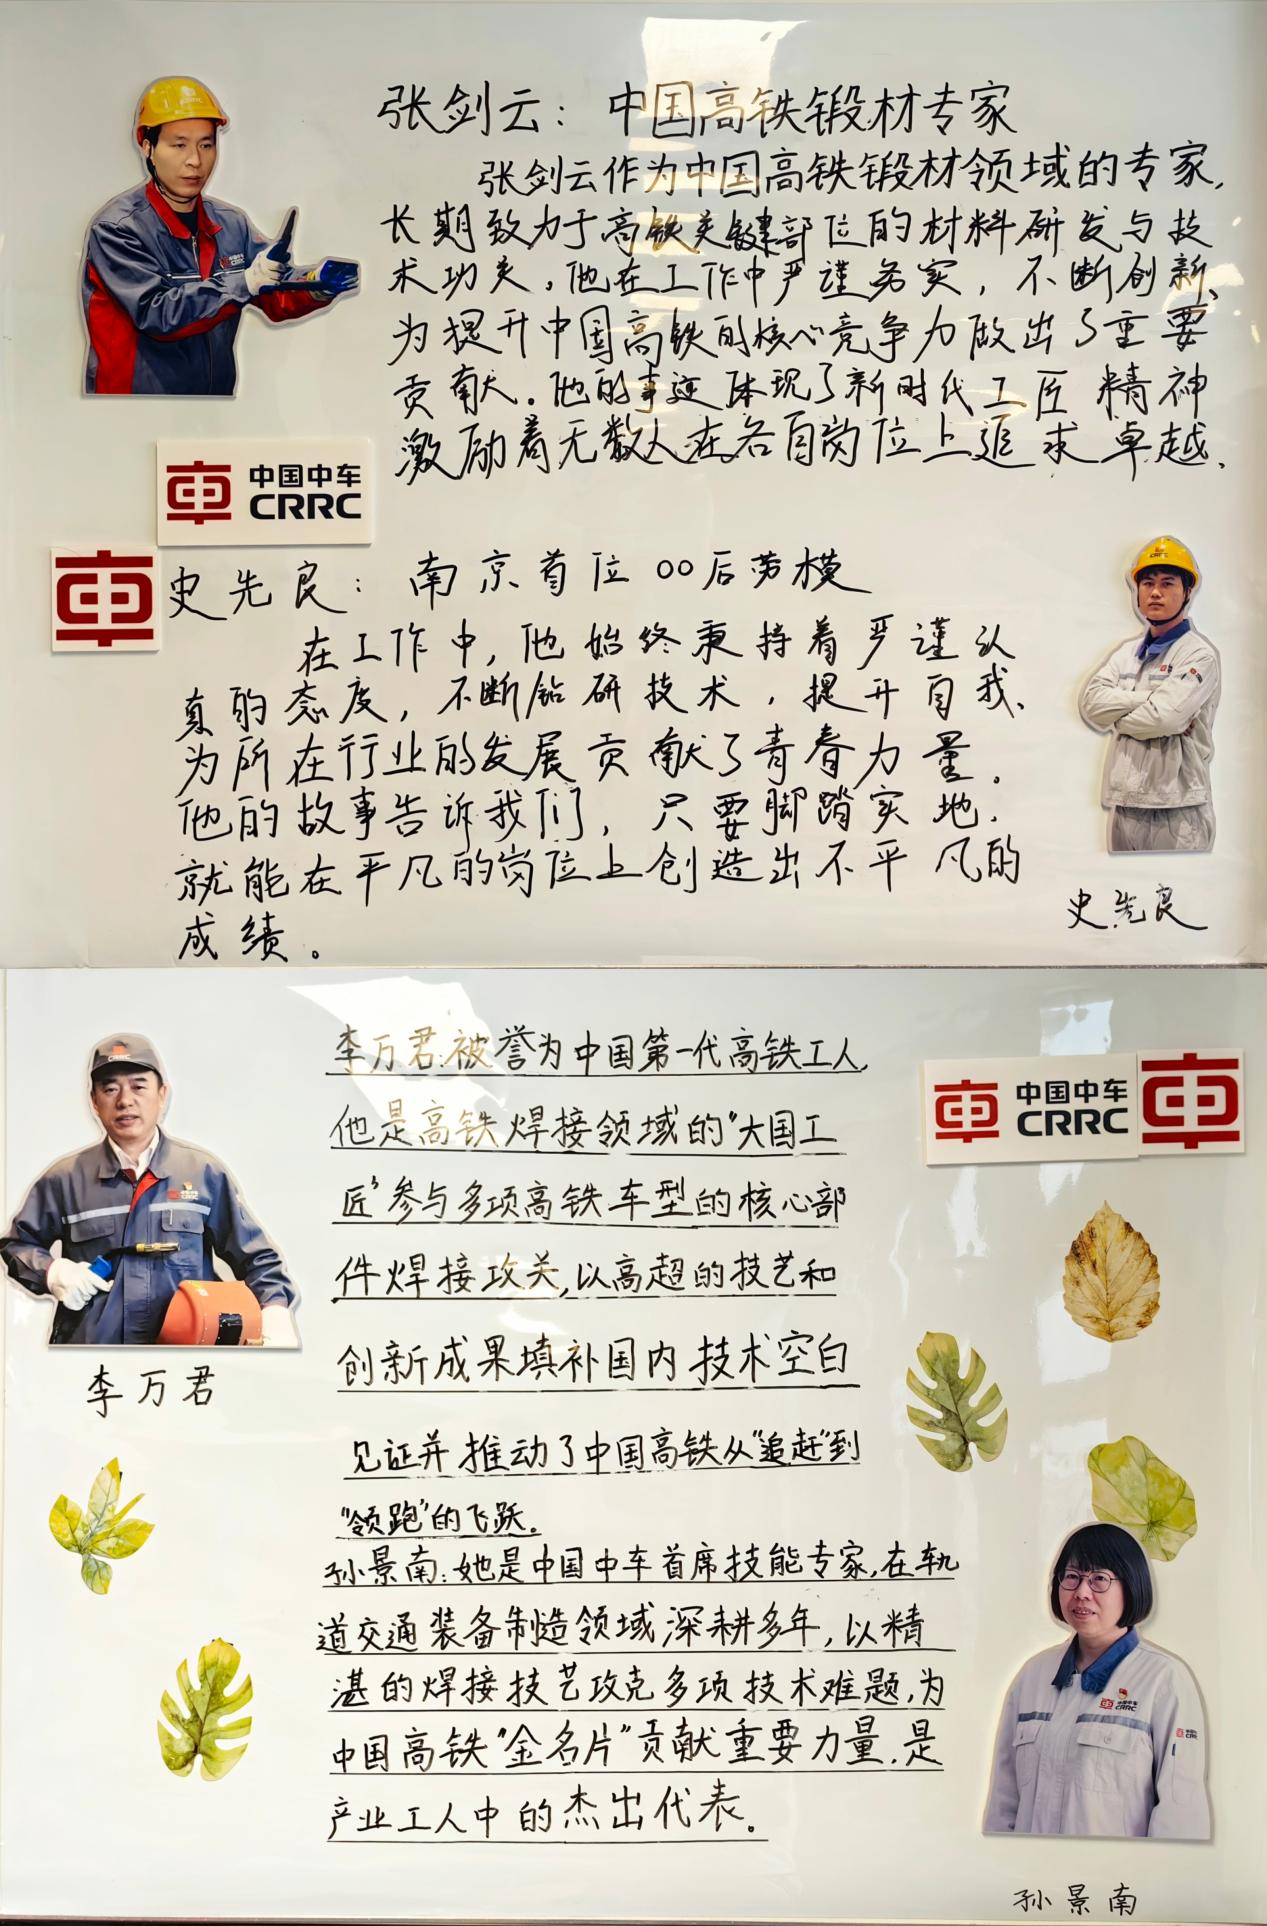 张剑云：中国高铁锻材专家
张剑云作为中国高铁锻材领域的专家，
长期致力于高铁关键部位的材料研发与技
术功关，他在工作中严谨务实，不断创新、
为提升中国高铁的核心竞争力做出了重要
贡献。他的事迹体现了新时代工匠精神
激励着无数人在各自岗位上追求卓越、
中国中车
CRRC
史先良：南京首位00后劳模
在工作中，他始终秉持着严谨认
真的态度，不断钻研技术，提升自我、
为所在行业的发展贡献了青春力量。
他的故事告诉我们，只要脚踏实地，
就能在平凡的岗位上创造出不平凡的
成绩。
史先良
李万君：被誉为中国第一代高铁工人，
他是高铁焊接领域的“大国工
匠”参与多项高铁车型的核心部
件焊接攻关，以高超的技艺和
创新成果填补国内技术空白
见证并推动了中国高铁从“追赶”到
“领跑”的飞跃。
李万君
中国中车
CRRC
孙景南：她是中国中车首席技能专家，在轨
道交通装备制造领域深耕多年，以精
湛的焊接技艺攻克多项技术难题，为
中国高铁“金名片”贡献重要力量，是
产业工人中的杰出代表。
孙景南